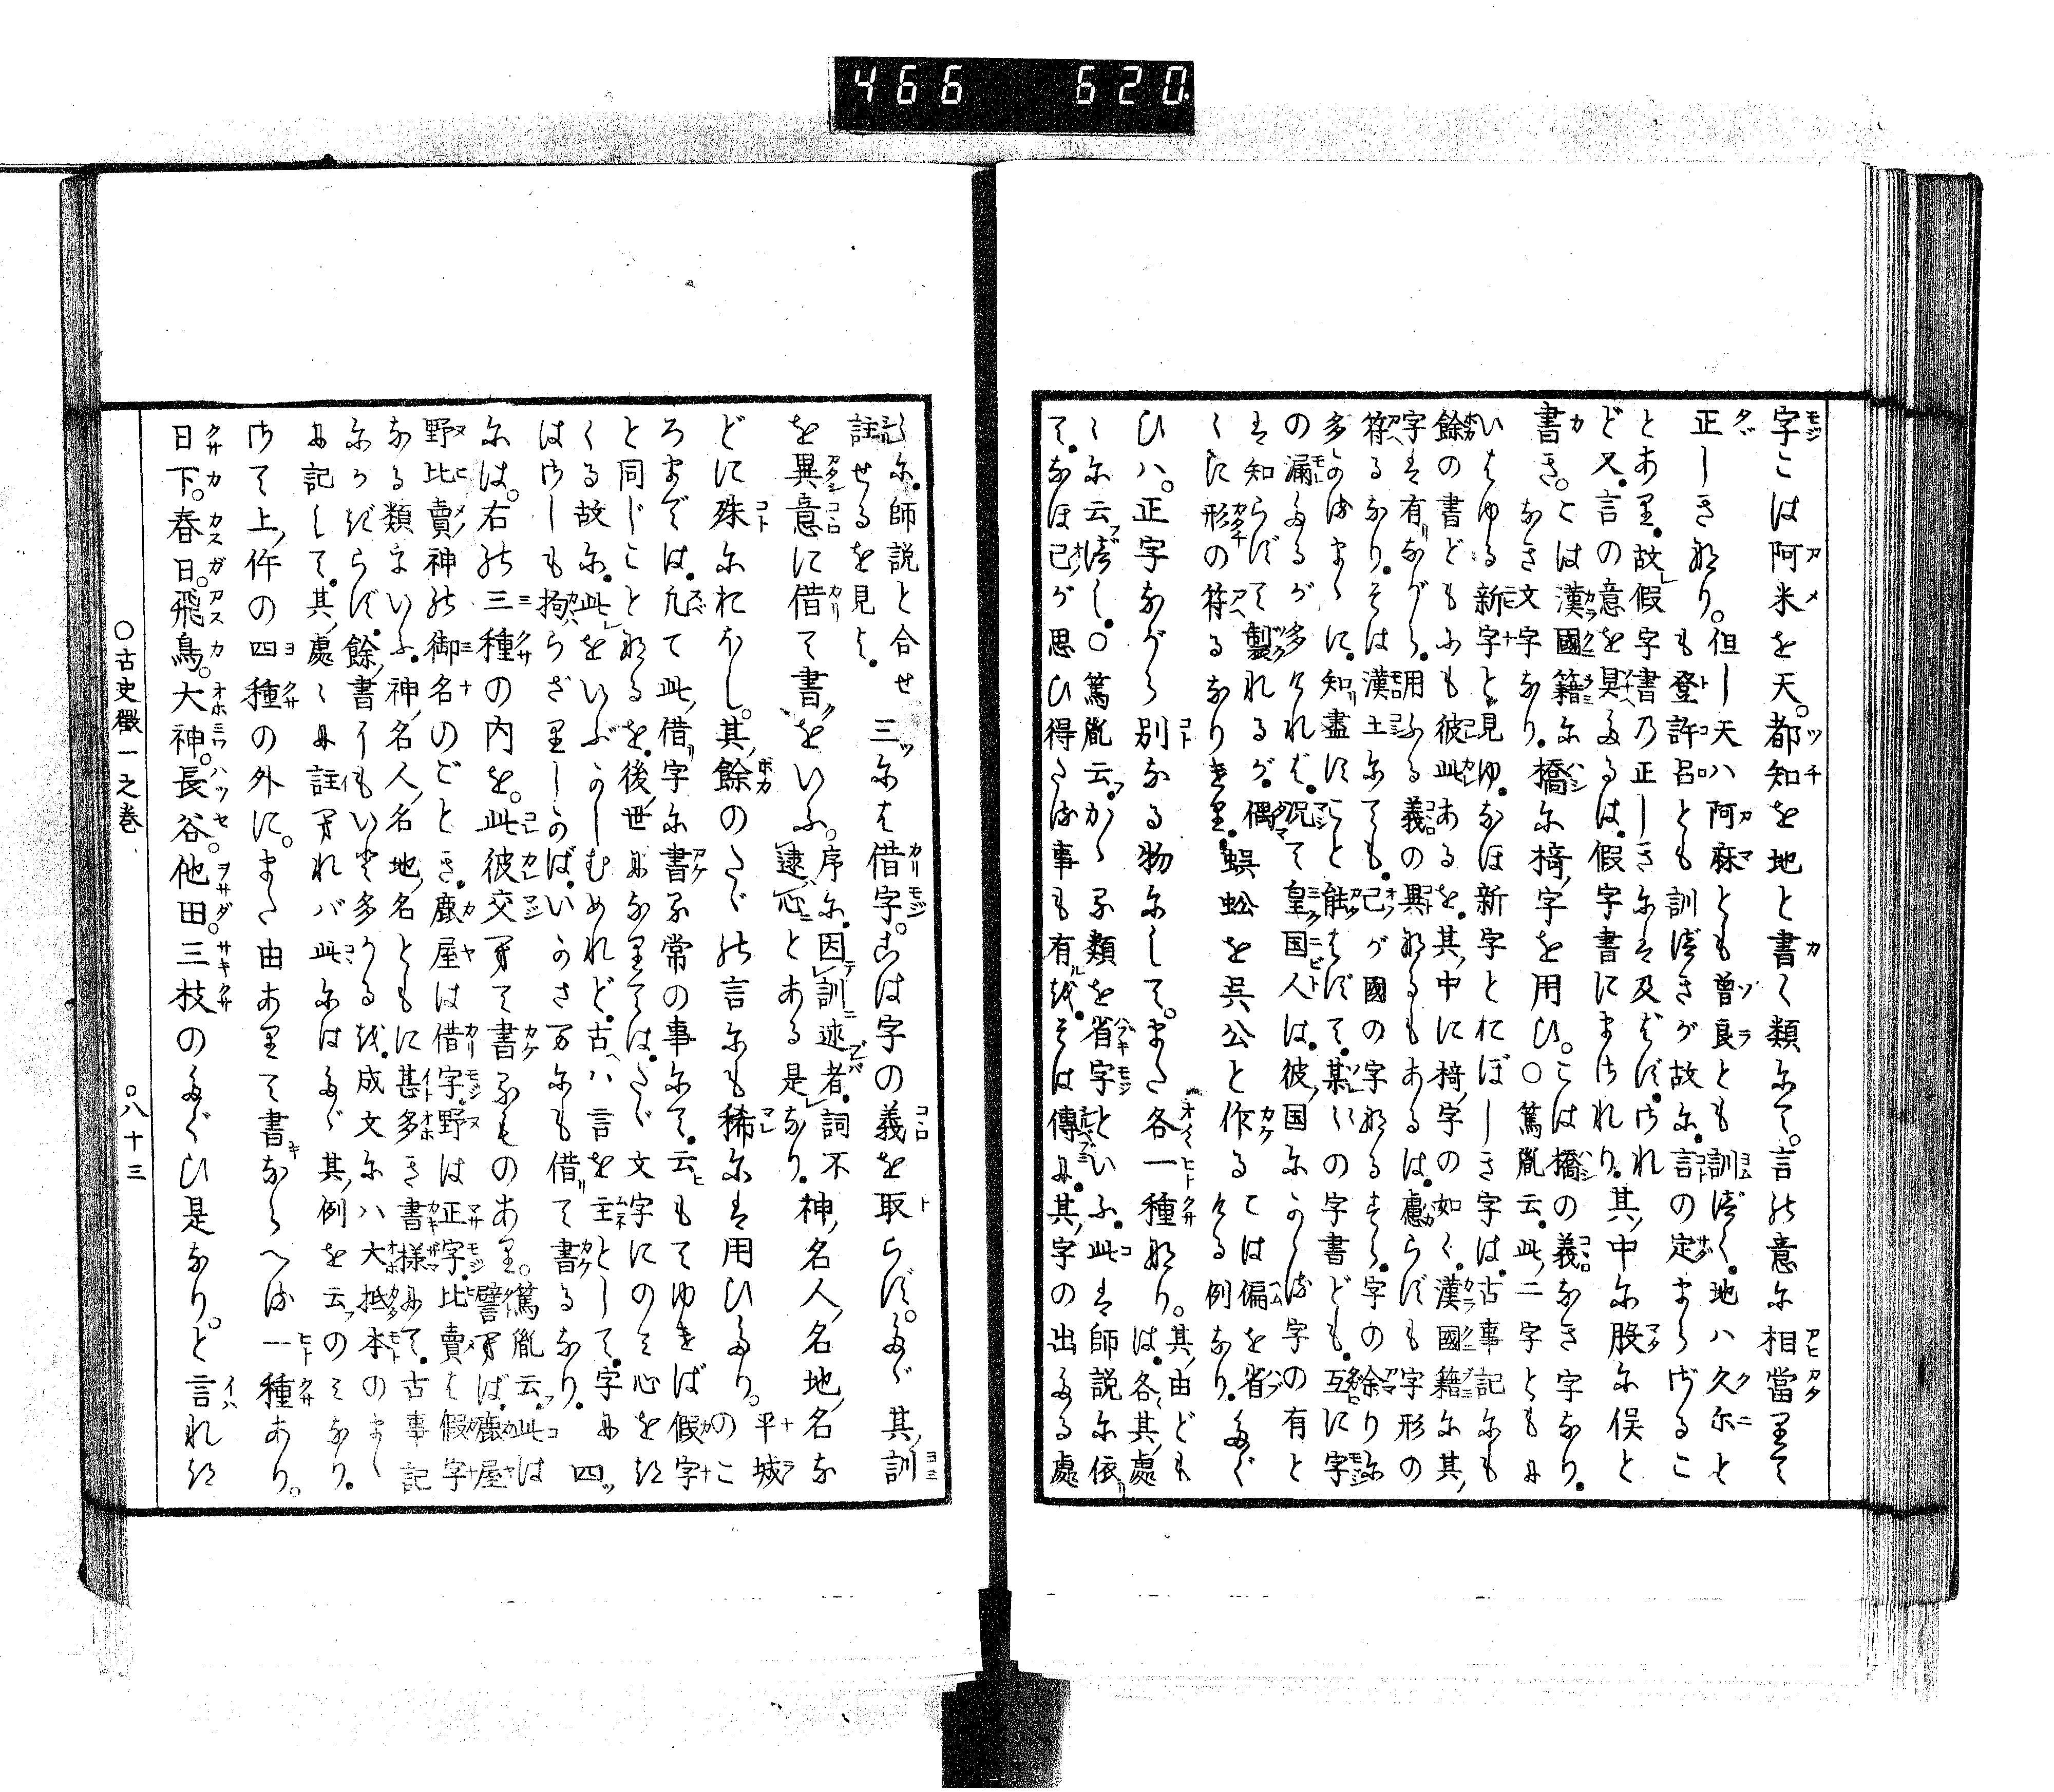 466 620
字こは阿米を天。都知を地と書く類にて。言の意に相當りて
正しきなり。但し天ハ阿麻とも曾良とも訓べく。地ハ久尓と
も登許呂とも訓べきが故に。言の定まらざるこ
とあり。故假字書の正しきには及ばず。され
ど又。言の意を具たるは。假字書にまされり。其中に股に俣と
書き。こは漢國籍に
なき文字なり。橋に椅字を用ひ。こは橋の義なき字なり。
○篤胤云。此二字ともに
いはゆる新字と見ゆ。なほ新字とおぼしき字は。古事記にも
餘の書どもにも彼此あるを。其中に椅字の如く。漢國籍に其
字は有ながら。用ふる義の異なるもあるは。慮らずも字形の
符るなり。そは漢土にても。己が國の字なるすら。字の餘りに
多かるまゝに。知盡すこと能はずて。某々の字書ども。互に字
の漏たるが多かれば。况て皇国人は。彼国にかゝる字の有と
は知らずて製れるが。偶
々に形の符るなりけり。蜈蚣を呉公と作る
こは偏を省
ける例なり。たぐ
ひハ。正字ながら別なる物にして。また各一種なり。其由ども
は。各其處
々に云べし。○篤胤云。かゝる類を省字といふ。此は師説に依
て。なほ己が思ひ得たる事も有を。そは傳に。其字の出たる處
々に。師説と合せ
註せるを見よ。三には借字。こは字の義を取らず。たゞ其訓
を異意に借て書をいふ。序に。因訓述者。詞不
逮心とある是なり。神名人名地名な
どに殊におほし。其餘のたゞの言にも稀には用ひたり。平城
のこ
ろまでは。凡て此借字に書る常の事にて。云もてゆけば假字
と同じことなるを。後世になりては。たゞ文字にのみ心をつ
くる故に。此をいぶかしむめれど。古ハ言を主として。字に
はさしも拘らざりしかば。いかさ万にも借て書るなり。四
には。右の三種の内を。此彼交て書るものあり。篤胤云。此は
譬へば。鹿屋
野比賣神の御名のごとき。鹿屋は借字。野は正字。比賣は假字
なる類をいふ。神名人名地名ともに甚多き書様にて。古事記
にかぎらず。餘書にもいと多かるを。成文にハ大抵本のまゝ
に記して。其處々に註たれバ此には。たゞ其例を云のみなり。
さて上件の四種の外に。また由ありて書ならへる一種あり。
日下。春日。飛鳥。大神。長谷。他田。三枝のたぐひ是なり。と言れつ
○古史徴一之巻 ○八十三